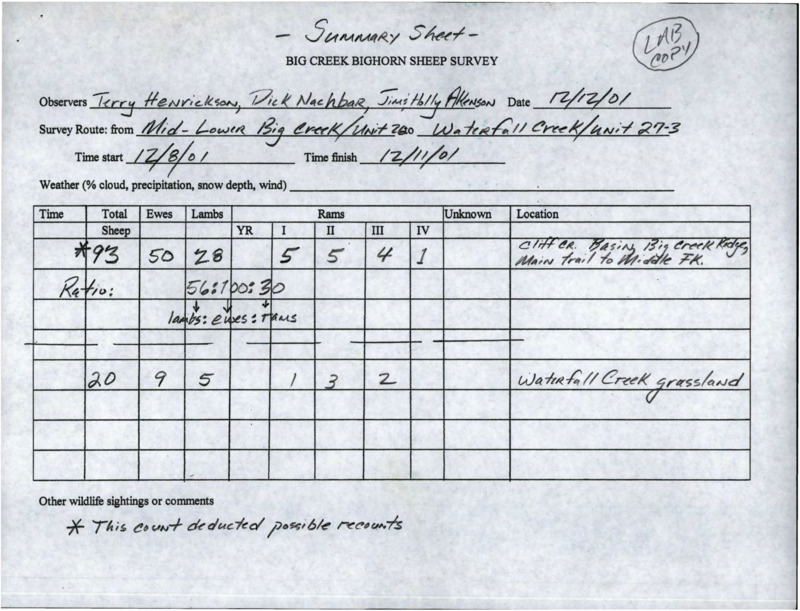 - Summary Sheet -
LAB COPY
BIG CREEK BIGHORN SHEEP SURVEY
Observers Terry Henrickson, Dick Nachbar, Jim & Holly Akenson Date 12/12/01
Survey Route: from Mid-Lower Big Creek/Unit to Waterfall Creek/Unit 27-3
Time start 12/8/01 Time finish 12/11/01
Weather (% cloud, precipitation, snow depth, wind)
Time Total Sheep Ewes Lambs Rams Unknown Location
YR I II III IV
*93 50 28 5 5 4 1 Cliff Cr. Basin, Big Creek Ridge,
Main trail to Middle Fk.
Ratio: 56:100:30
lambs: ewes: rams
20 9 5 1 3 2 Waterfall Creek grassland
Other wildlife sightings or comments
* This count deducted possible recounts